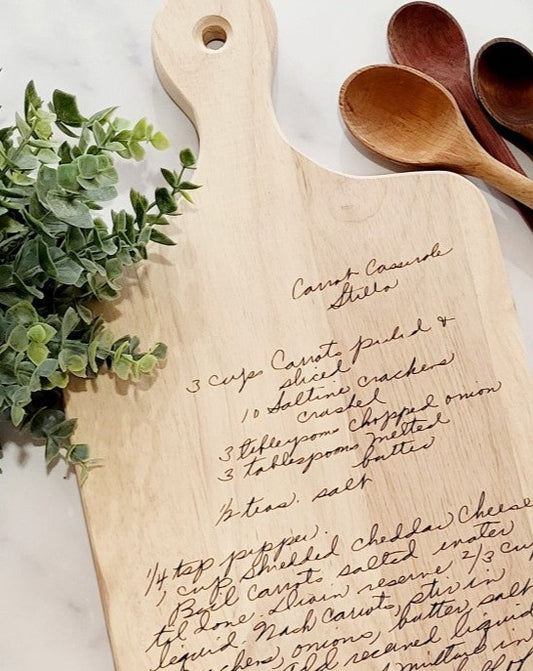 Carrot Casserole
Stella
3 cups Carrots peeled &
sliced
10 Saltine crackers
crashed
3 tablespoons chopped onion
3 tablespoons melted
butter
1/2 teas. salt
1/4 tsp pepper.
1 cup Shredded cheddar cheese
Boil carrots salted water
til done. Drain reserve 2/3 cup
liquid. Mash carrots, stir in
onions, butter, salt
liquid
mixture in